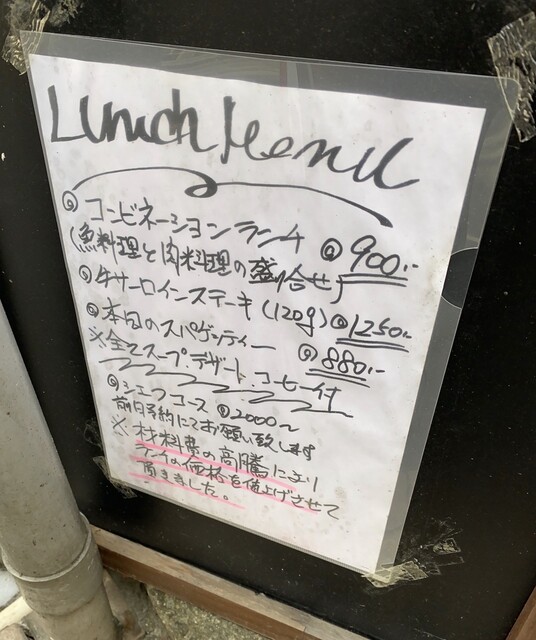 Lunch Menu
◎コンビネーションランチ @900.-
(魚料理と肉料理の盛り合せ)
◎牛サーロインステーキ(120g) @1250.-
◎本日のスパゲッティー @880.-
※全てスープ、デザート、コーヒー付
◎シェフコース @2000〜
前日予約にてお願い致します
※材料費の高騰により
ランチの価格を値上げさせて
頂きました。